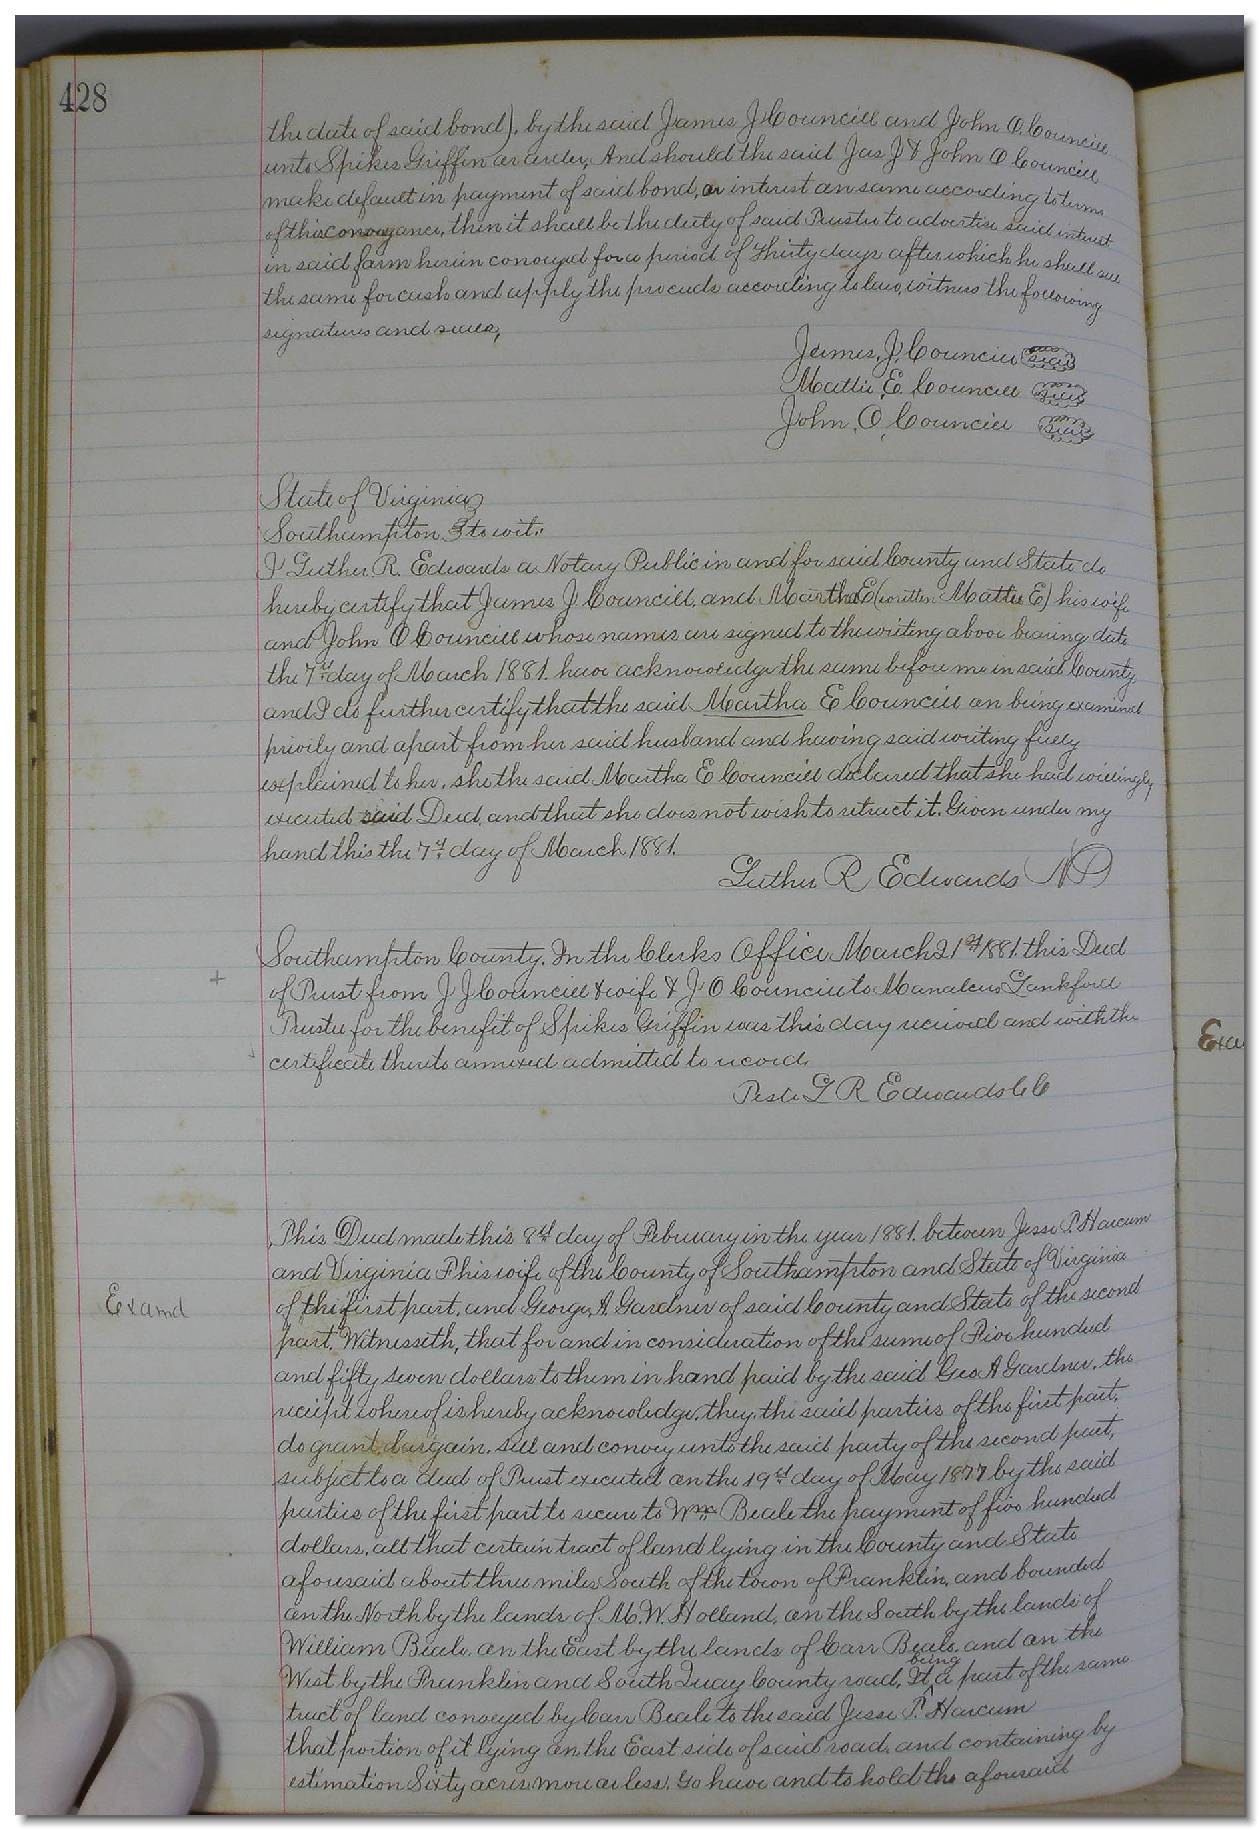 428
the date of said bond), by the said James J Councill and John O. Councill
unto Spikes Griffin or order, And should the said Jas J & John O Councill
make default in payment of said bond, or interest on same according to terms
of this conveyance, then it shall be the duty of said Trustee to advertise said interest
in said farm herein conveyed for a period of Thirty days after which he shall sell
the same for cash and apply the proceeds according to law, witness the following
signatures and seals,
James, J, Councill seal
Mattie, E, Councill seal
John, O, Councill seal
State of Virginia
Southampton to wit:
I Luther R. Edwards a Notary Public in and for said County and State do
hereby certify that James J Councill, and Martha E (written Mattie E) his wife
and John O Councill whose names are signed to the writing above bearing date
the 7th day of March 1881. have acknowledge the same before me in said County
and I do further certify that the said Martha E Councill on being examined
privily and apart from her said husband and having said writing fully
explained to her, she the said Martha E Councill declared that she had willingly
executed said Deed, and that she does not wish to retract it. Given under my
hand this the 7th day of March 1881.
Luther R Edwards NP
Southampton County. In the Clerks Office March 21st 1881. this Deed
+
of Trust from J J Councill & wife & J O Councill to Manalcus Lankford
Trustee for the benefit of Spikes Griffin was this day received and with the
certificate thereto annexed admitted to record.
Teste L R Edwards C C
Exa
This Deed made this 8th day of February in the year 1881. between Jesse P. Harcum
and Virginia F his wife of the County of Southampton and State of Virginia
Examd
of the first part, and George, A Gardner of said County and State of the second
part, Witnesseth, that for and in consideration of the sum of Five hundred
and fifty seven dollars to them in hand paid by the said Geo. A Gardner, the
receipt whereof is hereby acknowledge, they, the said parties of the first part,
do grant, bargain, sell and convey unto the said party of the second part,
subject to a deed of Trust executed on the 19th day of May 1877 by the said
parties of the first part to secure to Wm Beale the payment of five hundred
dollars, all that certain tract of land lying in the County and State
aforesaid about three miles South of the town of Franklin, and bounded
on the North by the lands of M. W. Holland, on the South by the lands of
William Beale, on the East by the lands of Carr Beale, and on the
West by the Franklin and South Quay County road, It being a part of the same
tract of land conveyed by Carr Beale to the said Jesse P. Harcum
that portion of it lying on the East side of said road, and containing by
estimation Sixty acres more or less, To have and to hold the aforesaid